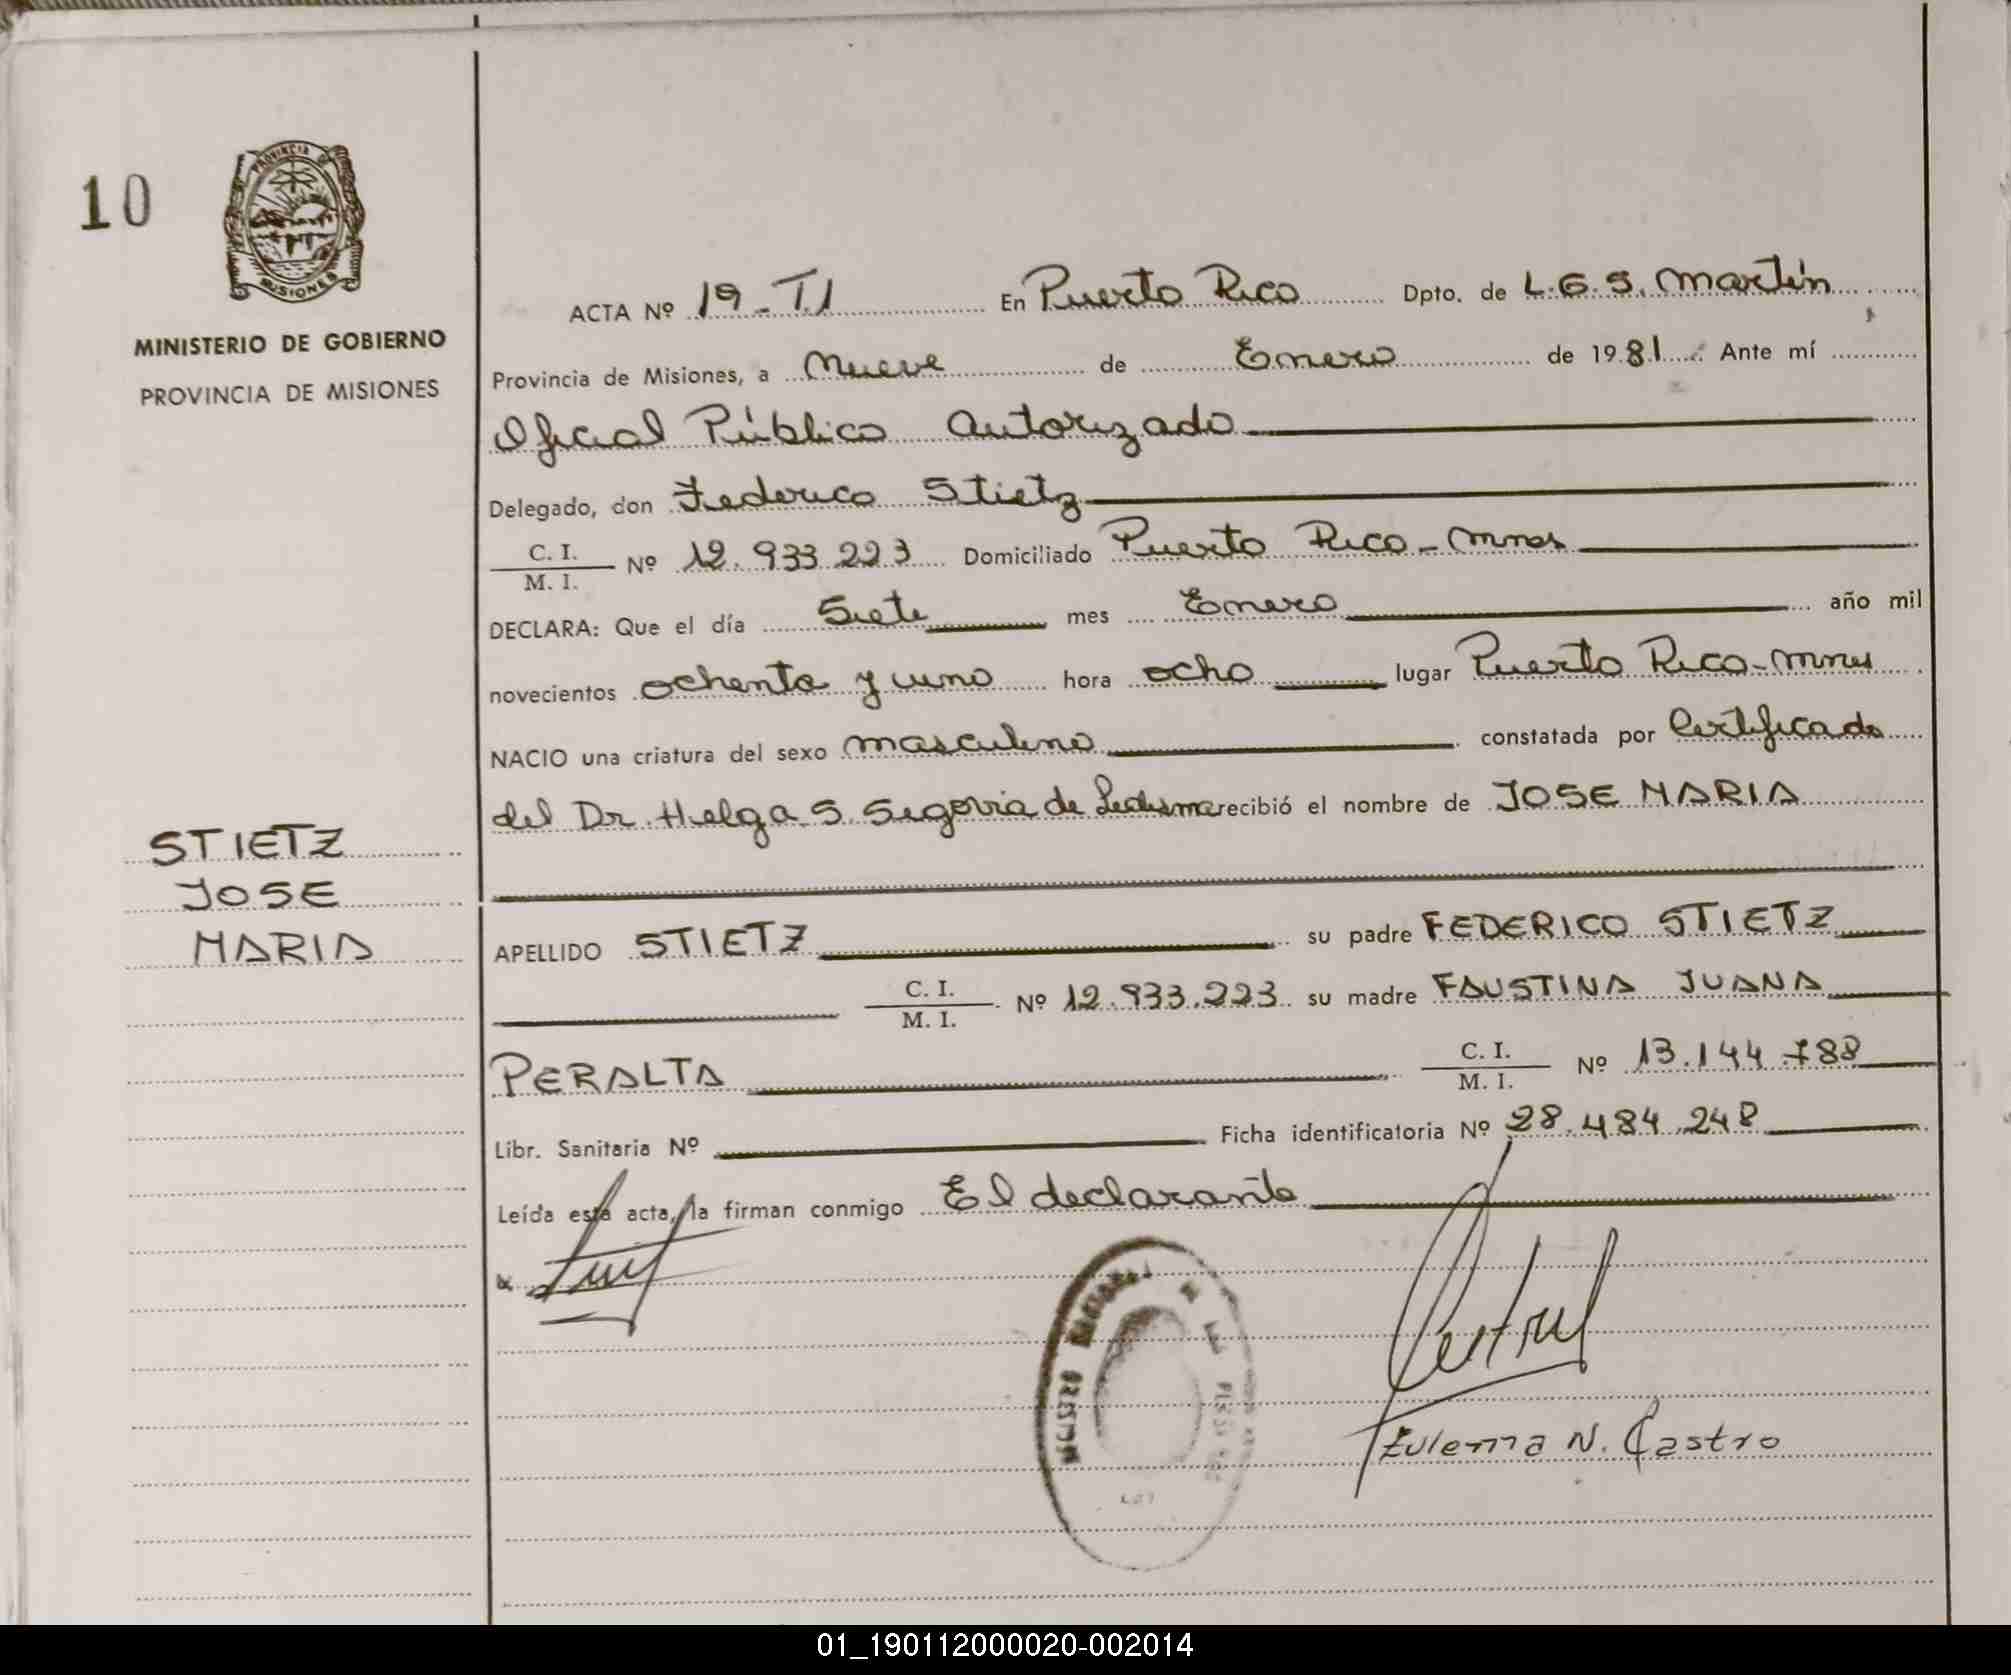 10
PROVINCIA DE
MISIONES
MINISTERIO DE GOBIERNO
PROVINCIA DE MISIONES
ACTA Nº 19-T.I En Puerto Rico Dpto. de L.G.S. Martín
Provincia de Misiones, a Nueve de Enero de 1981 Ante mí
Oficial Público Autorizado
Delegado, don Federico Stietz
C. I.
M. I. Nº 12.933.223 Domiciliado Puerto Rico - Mnes
DECLARA: Que el día Siete mes Enero año mil
novecientos ochenta y uno hora ocho lugar Puerto Rico - Mnes
NACIO una criatura del sexo masculino constatada por Certificado
del Dr. Helga S. Segovia de Ledesma recibió el nombre de JOSE MARIA
STIETZ
JOSE
MARIA
APELLIDO STIETZ su padre FEDERICO STIETZ
C. I.
M. I. Nº 12.933.223 su madre FAUSTINA JUANA
PERALTA C. I.
M. I. Nº 13.144.788
Libr. Sanitaria Nº Ficha identificatoria Nº 28.484.248
Leída esta acta, la firman conmigo El declarante
Zulema N. Castro
01_190112000020-002014